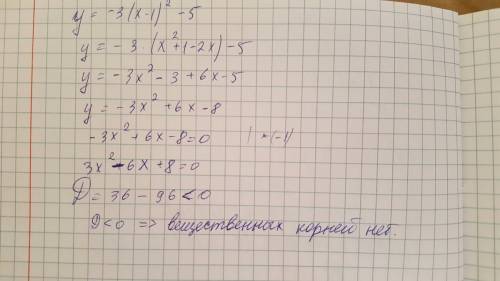 y = -3(x-1)² -5
y = -3·(x²+1-2x)-5
y = -3x² - 3 + 6x-5
y = -3x² +6x -8
-3x² + 6x -8=0 | *(-1)
3x² -6x +8=0
D = 36 - 96 < 0
D<0 => вещественных корней нет.